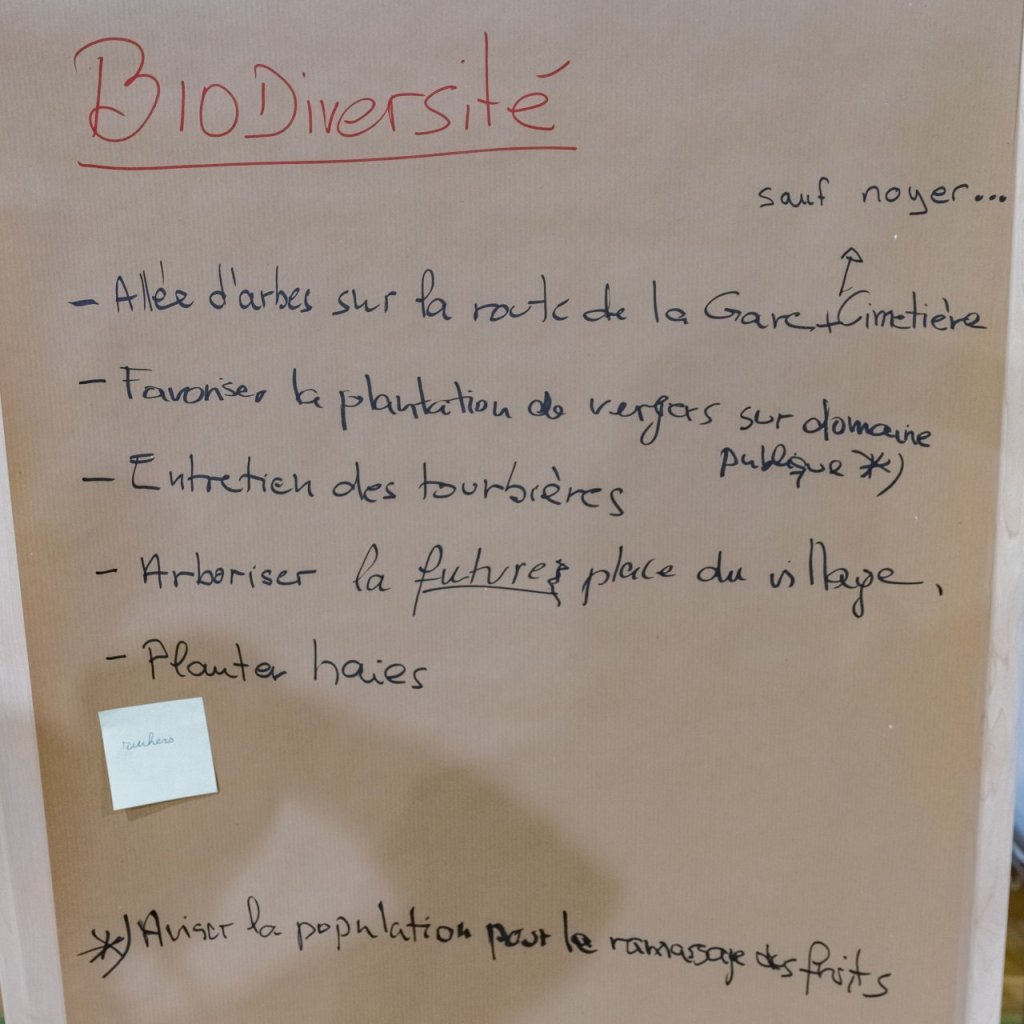 BIODiversité
sauf noyer...
- Allée d'arbes sur la route de la Gare + Cimetière
- Favoriser la plantation de vergers sur domaine
publique *)
- Entretien des tourbières
- Arboriser la future place du village.
- Planter haies
ruchers
*) Aviser la population pour le ramassage des fruits